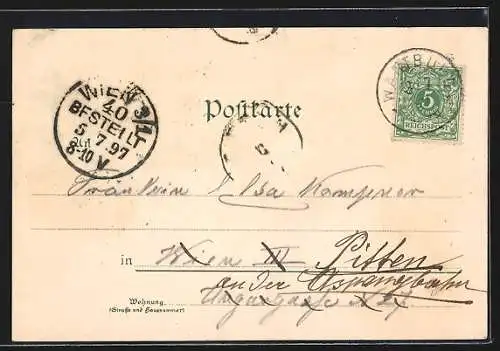 WIEN 3/1
40
BESTELLT
5 7.97
8-10 V
Postkarte
5
REICHSPOST
Fräulein Elsa
in Wien III Pitten
an der Aspangbahn
Ungargasse
Wohnung
(Straße und Hausnummer)